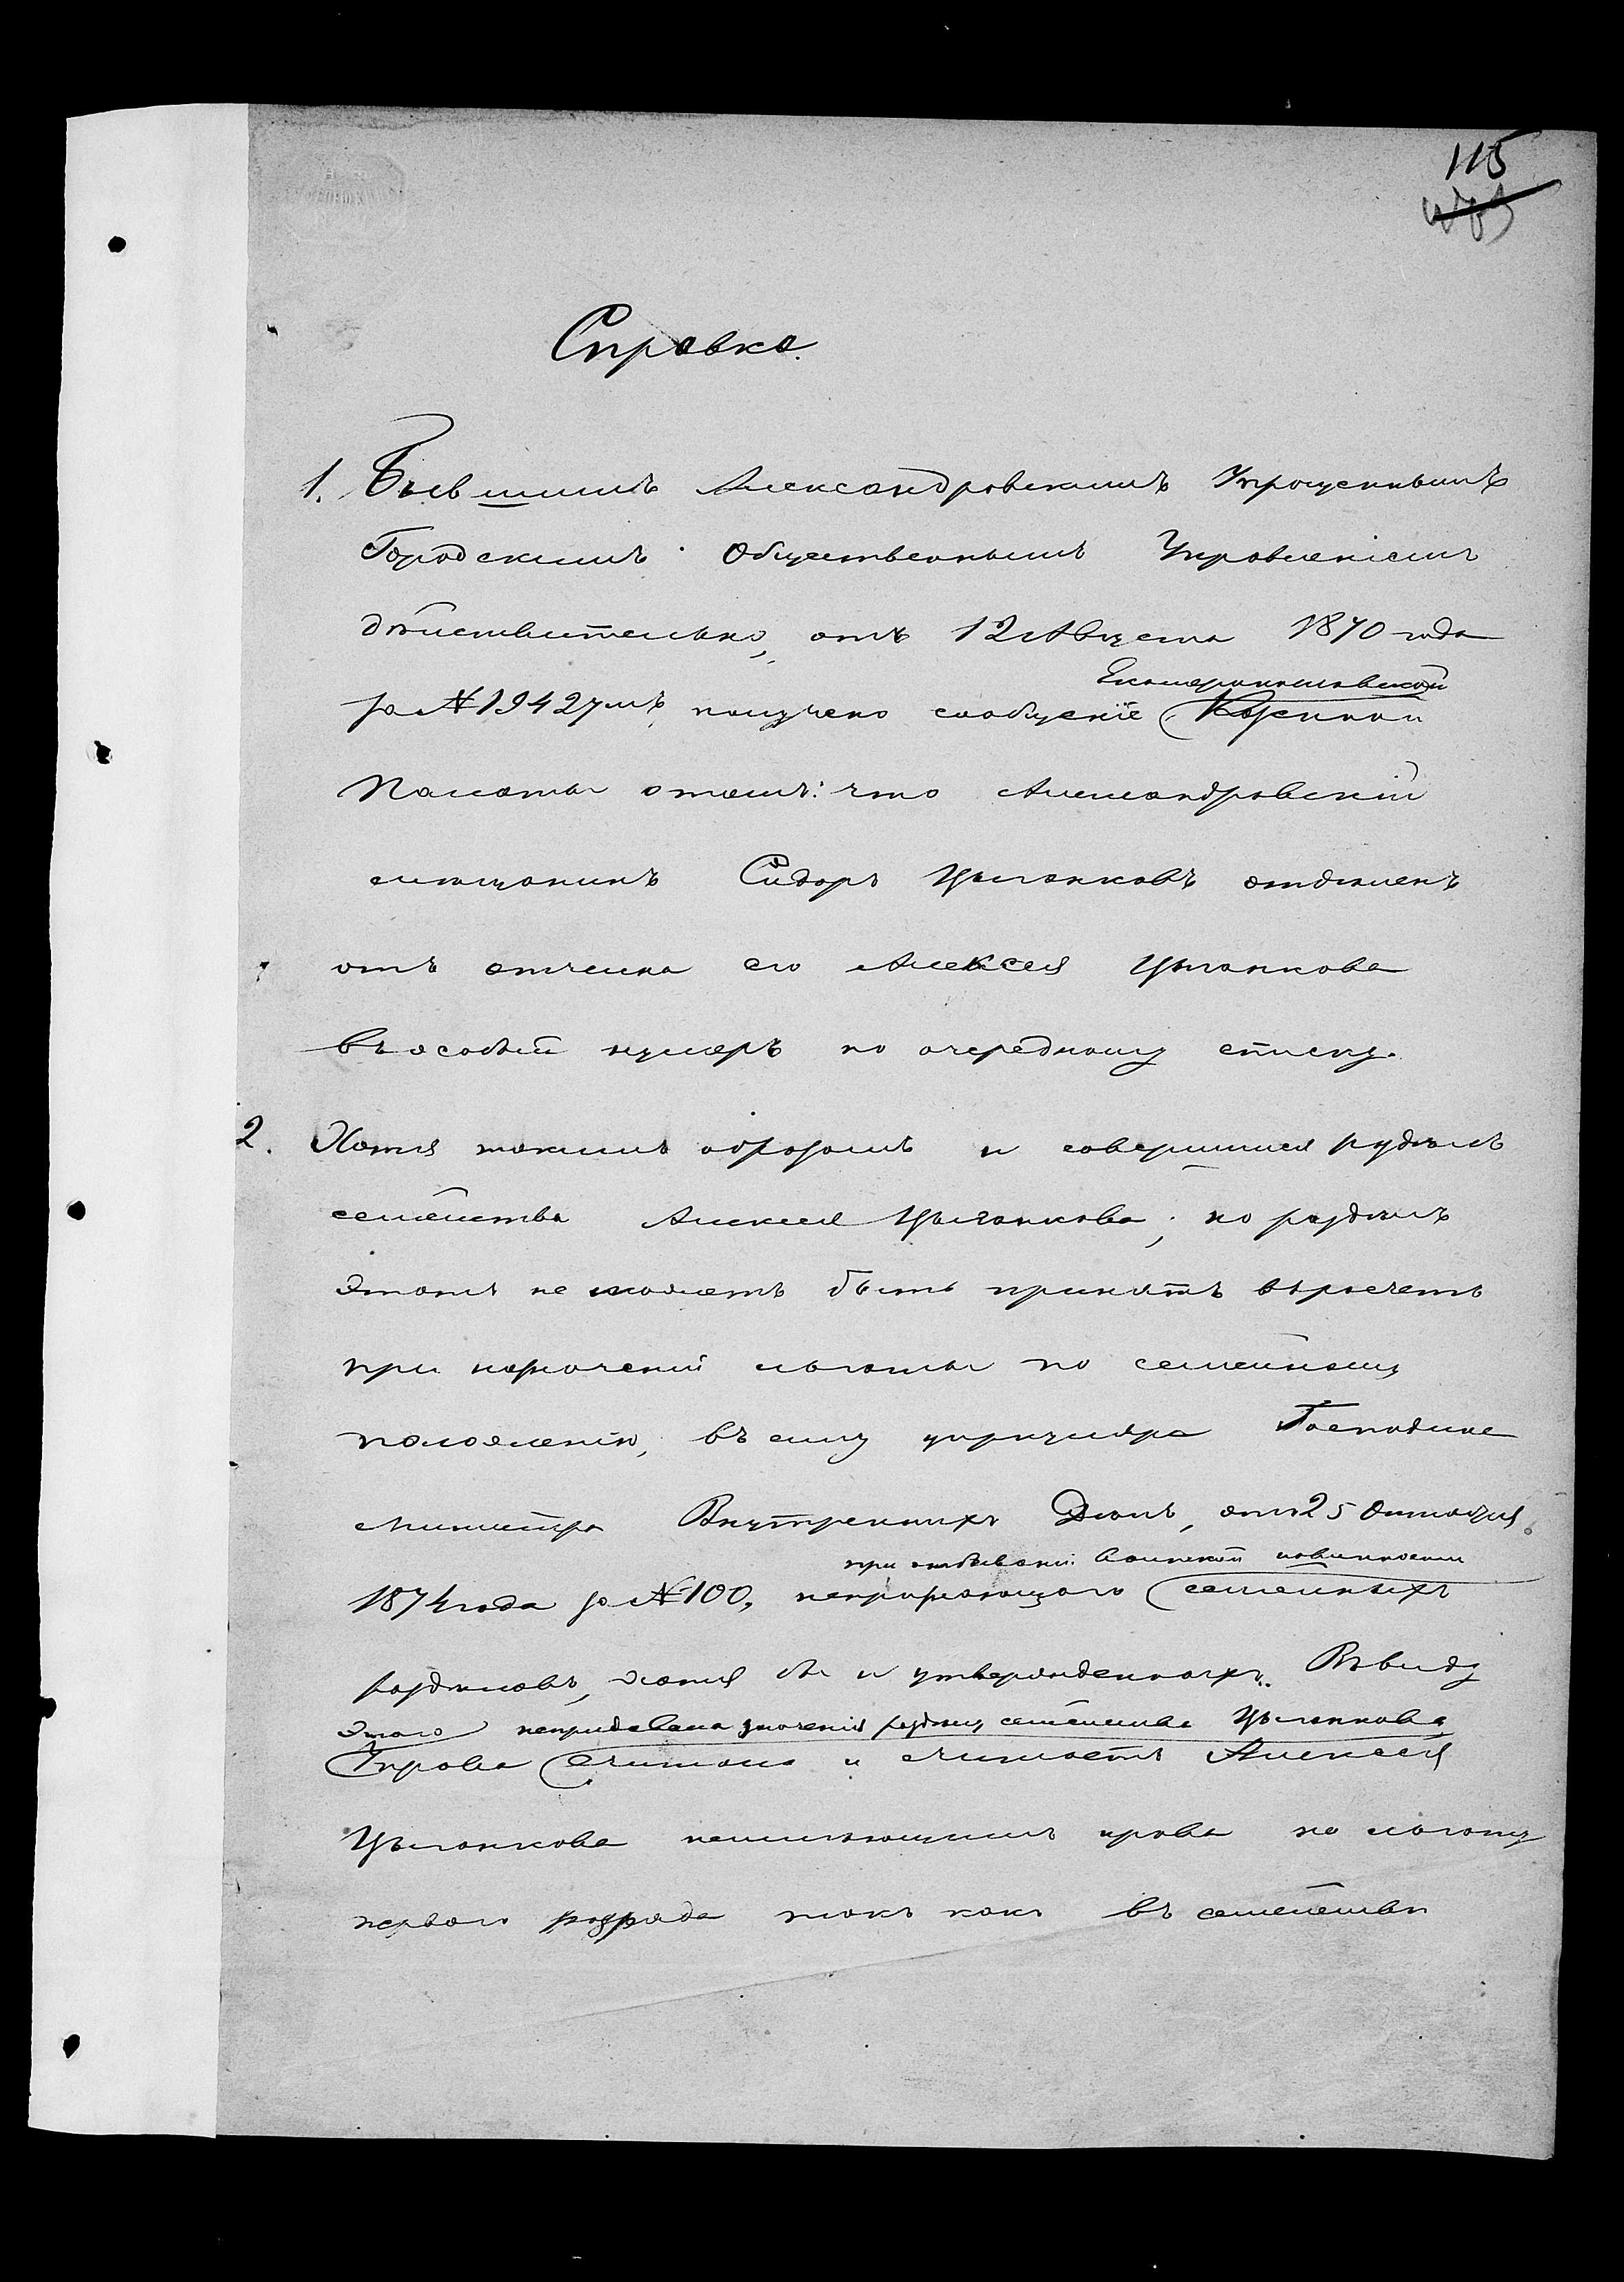 115
Справка.
1. Бывшимъ Александровскимъ Упрощеннымъ
Городскимъ Общественнымъ Управленіемъ
дѣйствительно, отъ 12 Августа 1870 года
за № 19427мъ, получено сообщеніе Екатеринославской Казенной
Палаты о томъ: что Александровскій
мѣщанинъ Сидоръ Цыганковъ отдѣленъ
отъ отчима его Алексея Цыганкова
въ особый нумеръ по очередному списку.
2. Хотя такимъ образомъ и совершился раздѣлъ
семейства Алексея Цыганкова, но раздѣлъ
этотъ не можетъ быть принятъ въ расчетъ
при назначеніи льготы по семейному
положенію, въ силу циркуляра Господина
Министра Внутреннихъ Дѣлъ, отъ 25 Октября
1874 года за № 100, непризнающаго при отбываніи воинской повинности семейныхъ
раздѣловъ, хотя бы и утвержденныхъ. Въ виду
этого непридавая значенія раздѣлу семейства Цыганкова,
Управа считала и считаетъ Алексея
Цыганкова неимѣющимъ права на льготу
перваго разряда такъ какъ въ семействѣ